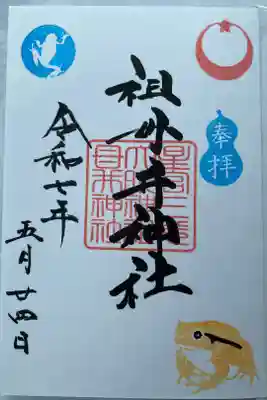 奉拝
祖母井神社
令和七年
五月廿四日